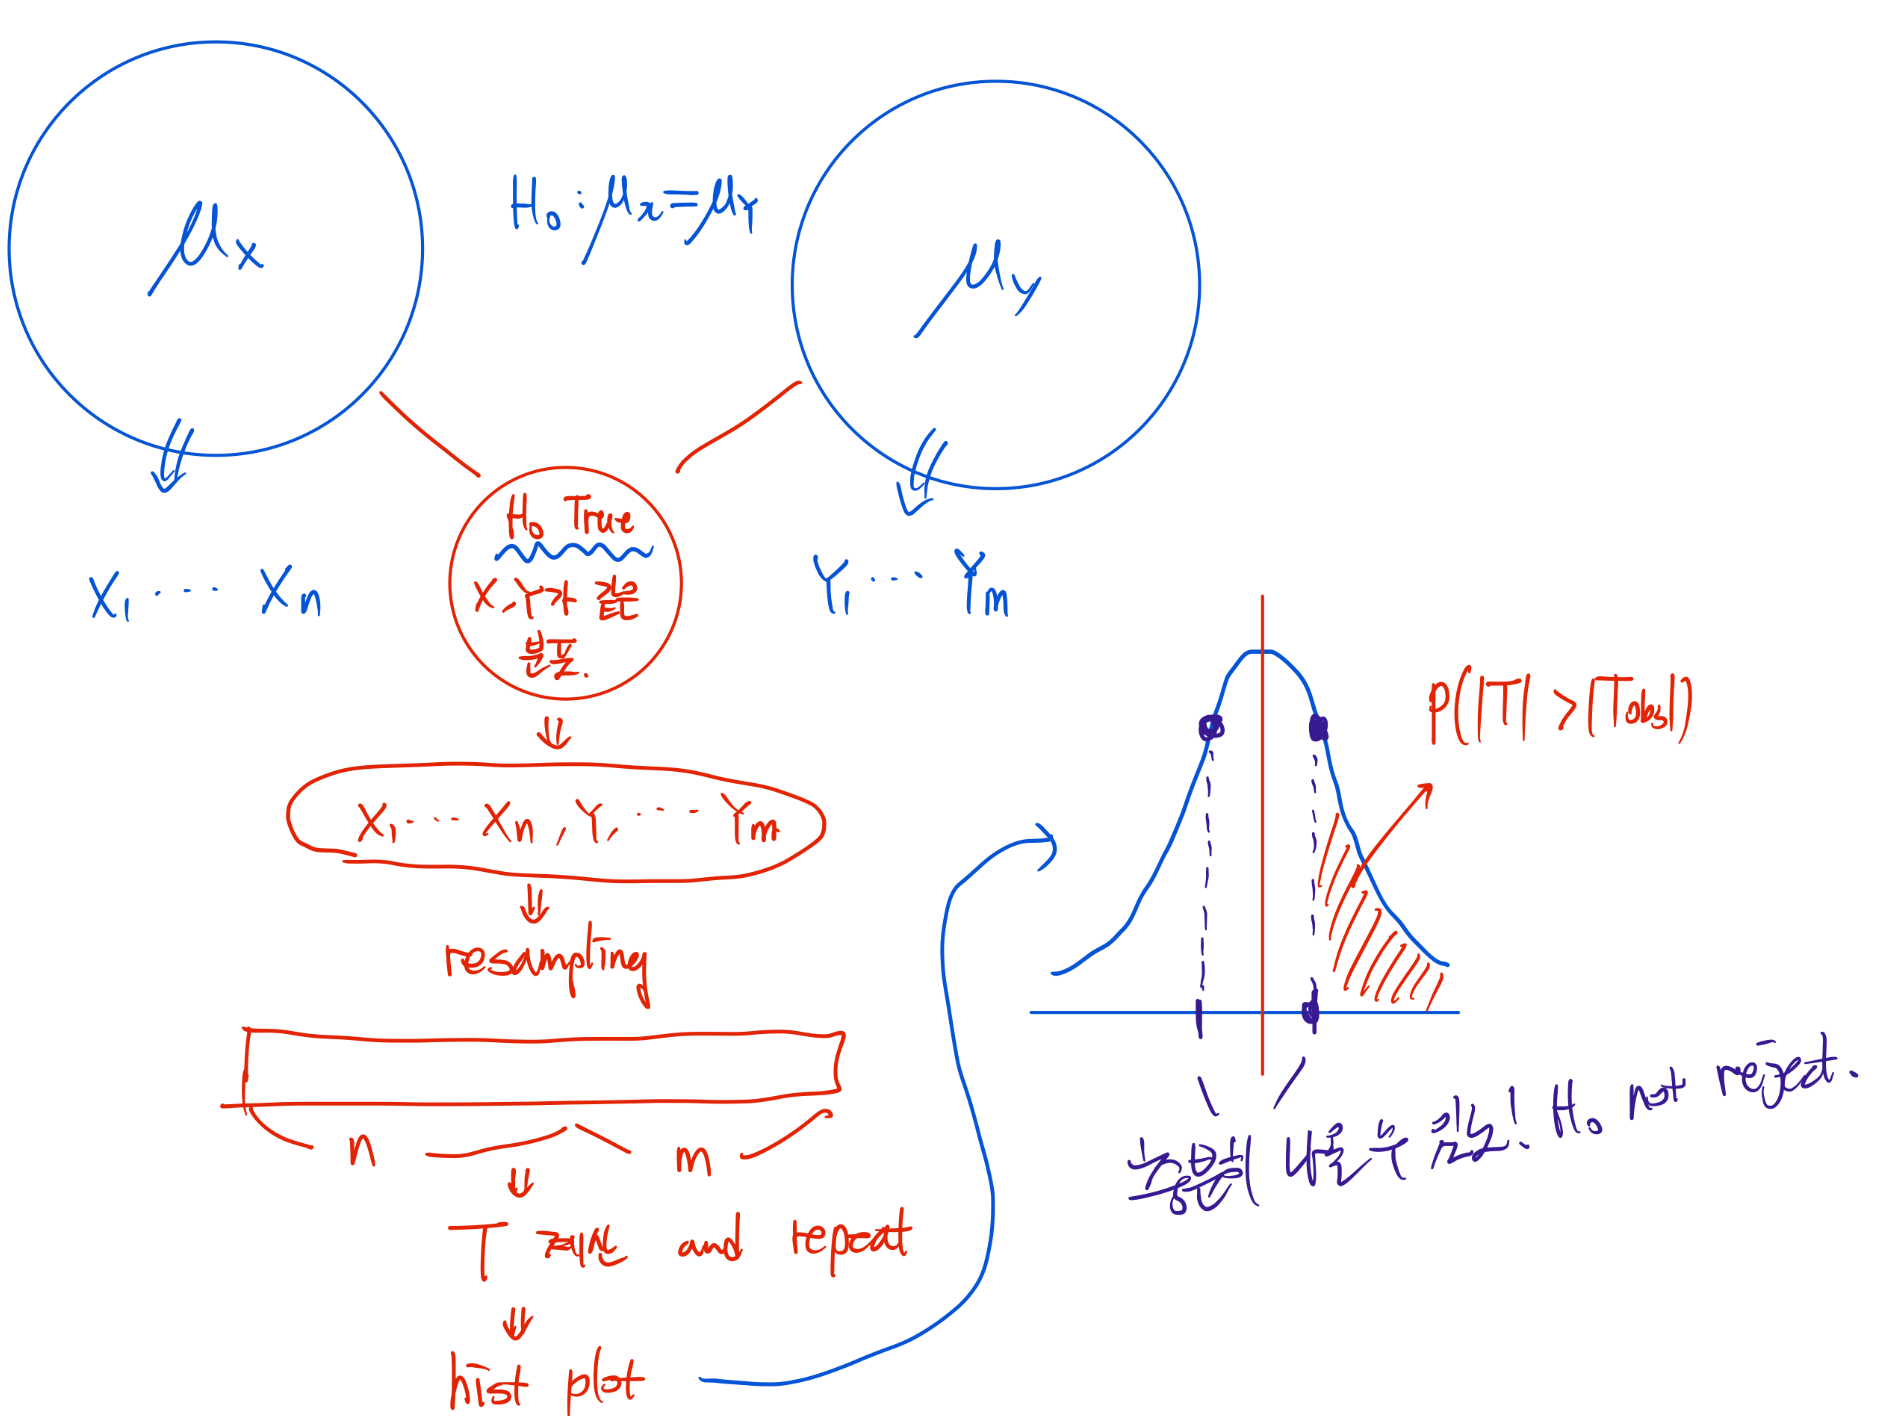 μx
H₀ : μx = μY
μy
X₁ ⋯ Xn
H₀ True
X, Y가 같은
분포.
Y₁ ⋯ Ym
X₁ ⋯ Xn , Y₁ ⋯ Ym
resampling
n
m
T 계산 and repeat
hist plot
P(|T| > |Tobs|)
충분히 나올 수 있는! H₀ not reject.